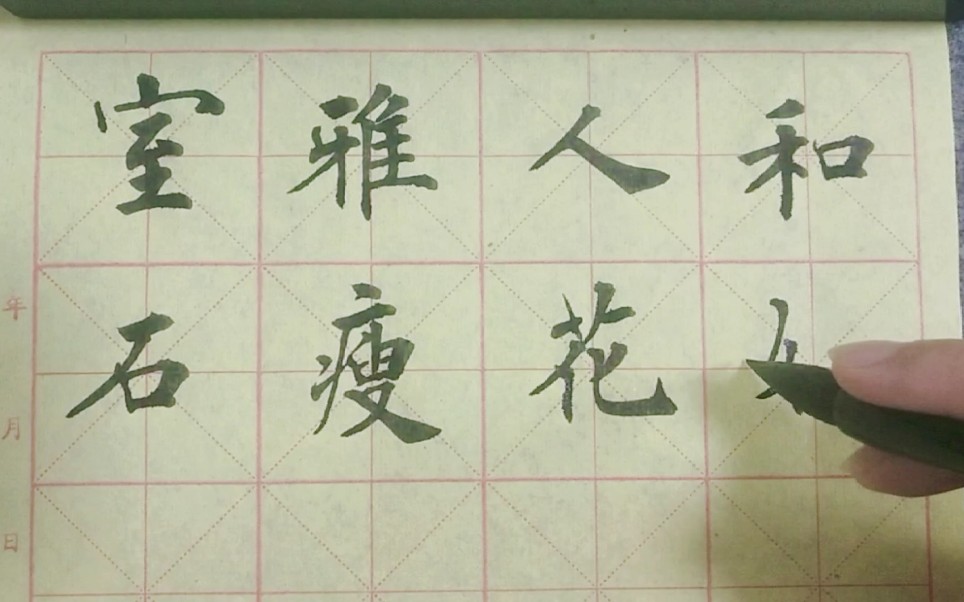 室雅人和
石瘦花
年
月
日